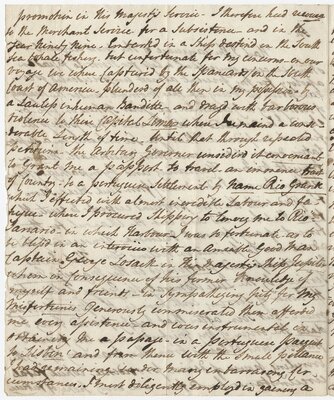 promotion in His Majesty's Service - I therefore had recourse
to the Merchant Service for a Subsistence - and in the
Year Ninety Nine - Embarked in a Ship destin'd in the South
Sea whale fishery - but unfortunate for my concerns on our
voyage we where Captured by the Spaniards, on the South
Coast of America - plunderd of all then in my possession by
a Lawless inhuman Banditte - and dragd with barbarous
violence to their Capital when I remain'd a consi-
derable Length of time - Until that through repeated
petitions the Arbitrary Governor considerd it convenient
to Grant me a passport to travel an immence tract
of Country - to a portuguese Settlement by Name Rio Grande
which I effected with almost incredible Labour and fa-
tigue - when I procured Shipping to convey me to Rio
Janario - in which Harbour I was so fortunate as to
be blest in an interview with an amiable Good Man
Captain George Losack of His Majesty's Ship Jupiter
whom in consequence of his former Knowledge of
myself and friends - in Sympathizing pity for my
Misfortune Generously commiserated then afforded
me every assistance - and was instrumental in
obtaining me a passage in a portuguese
to Lisbon and from thence with the Small pittance
remaining in my
cumstances. I most diligently employed in gaining a